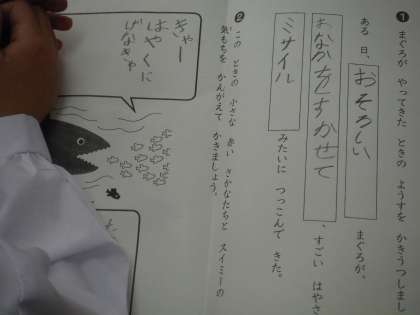 ❶ まぐろが やってきた ときの ようすを かきうつしまし
ある 日、 おそろしい まぐろが、
おなかをすかせて 、すごい はやさ
ミサイル みたいに つっこんで きた。
❷ この ときの 小さな 赤い さかなたちと スイミーの
気もちを かんがえて かきましょう。
きゃー
はやくに
げなきゃ